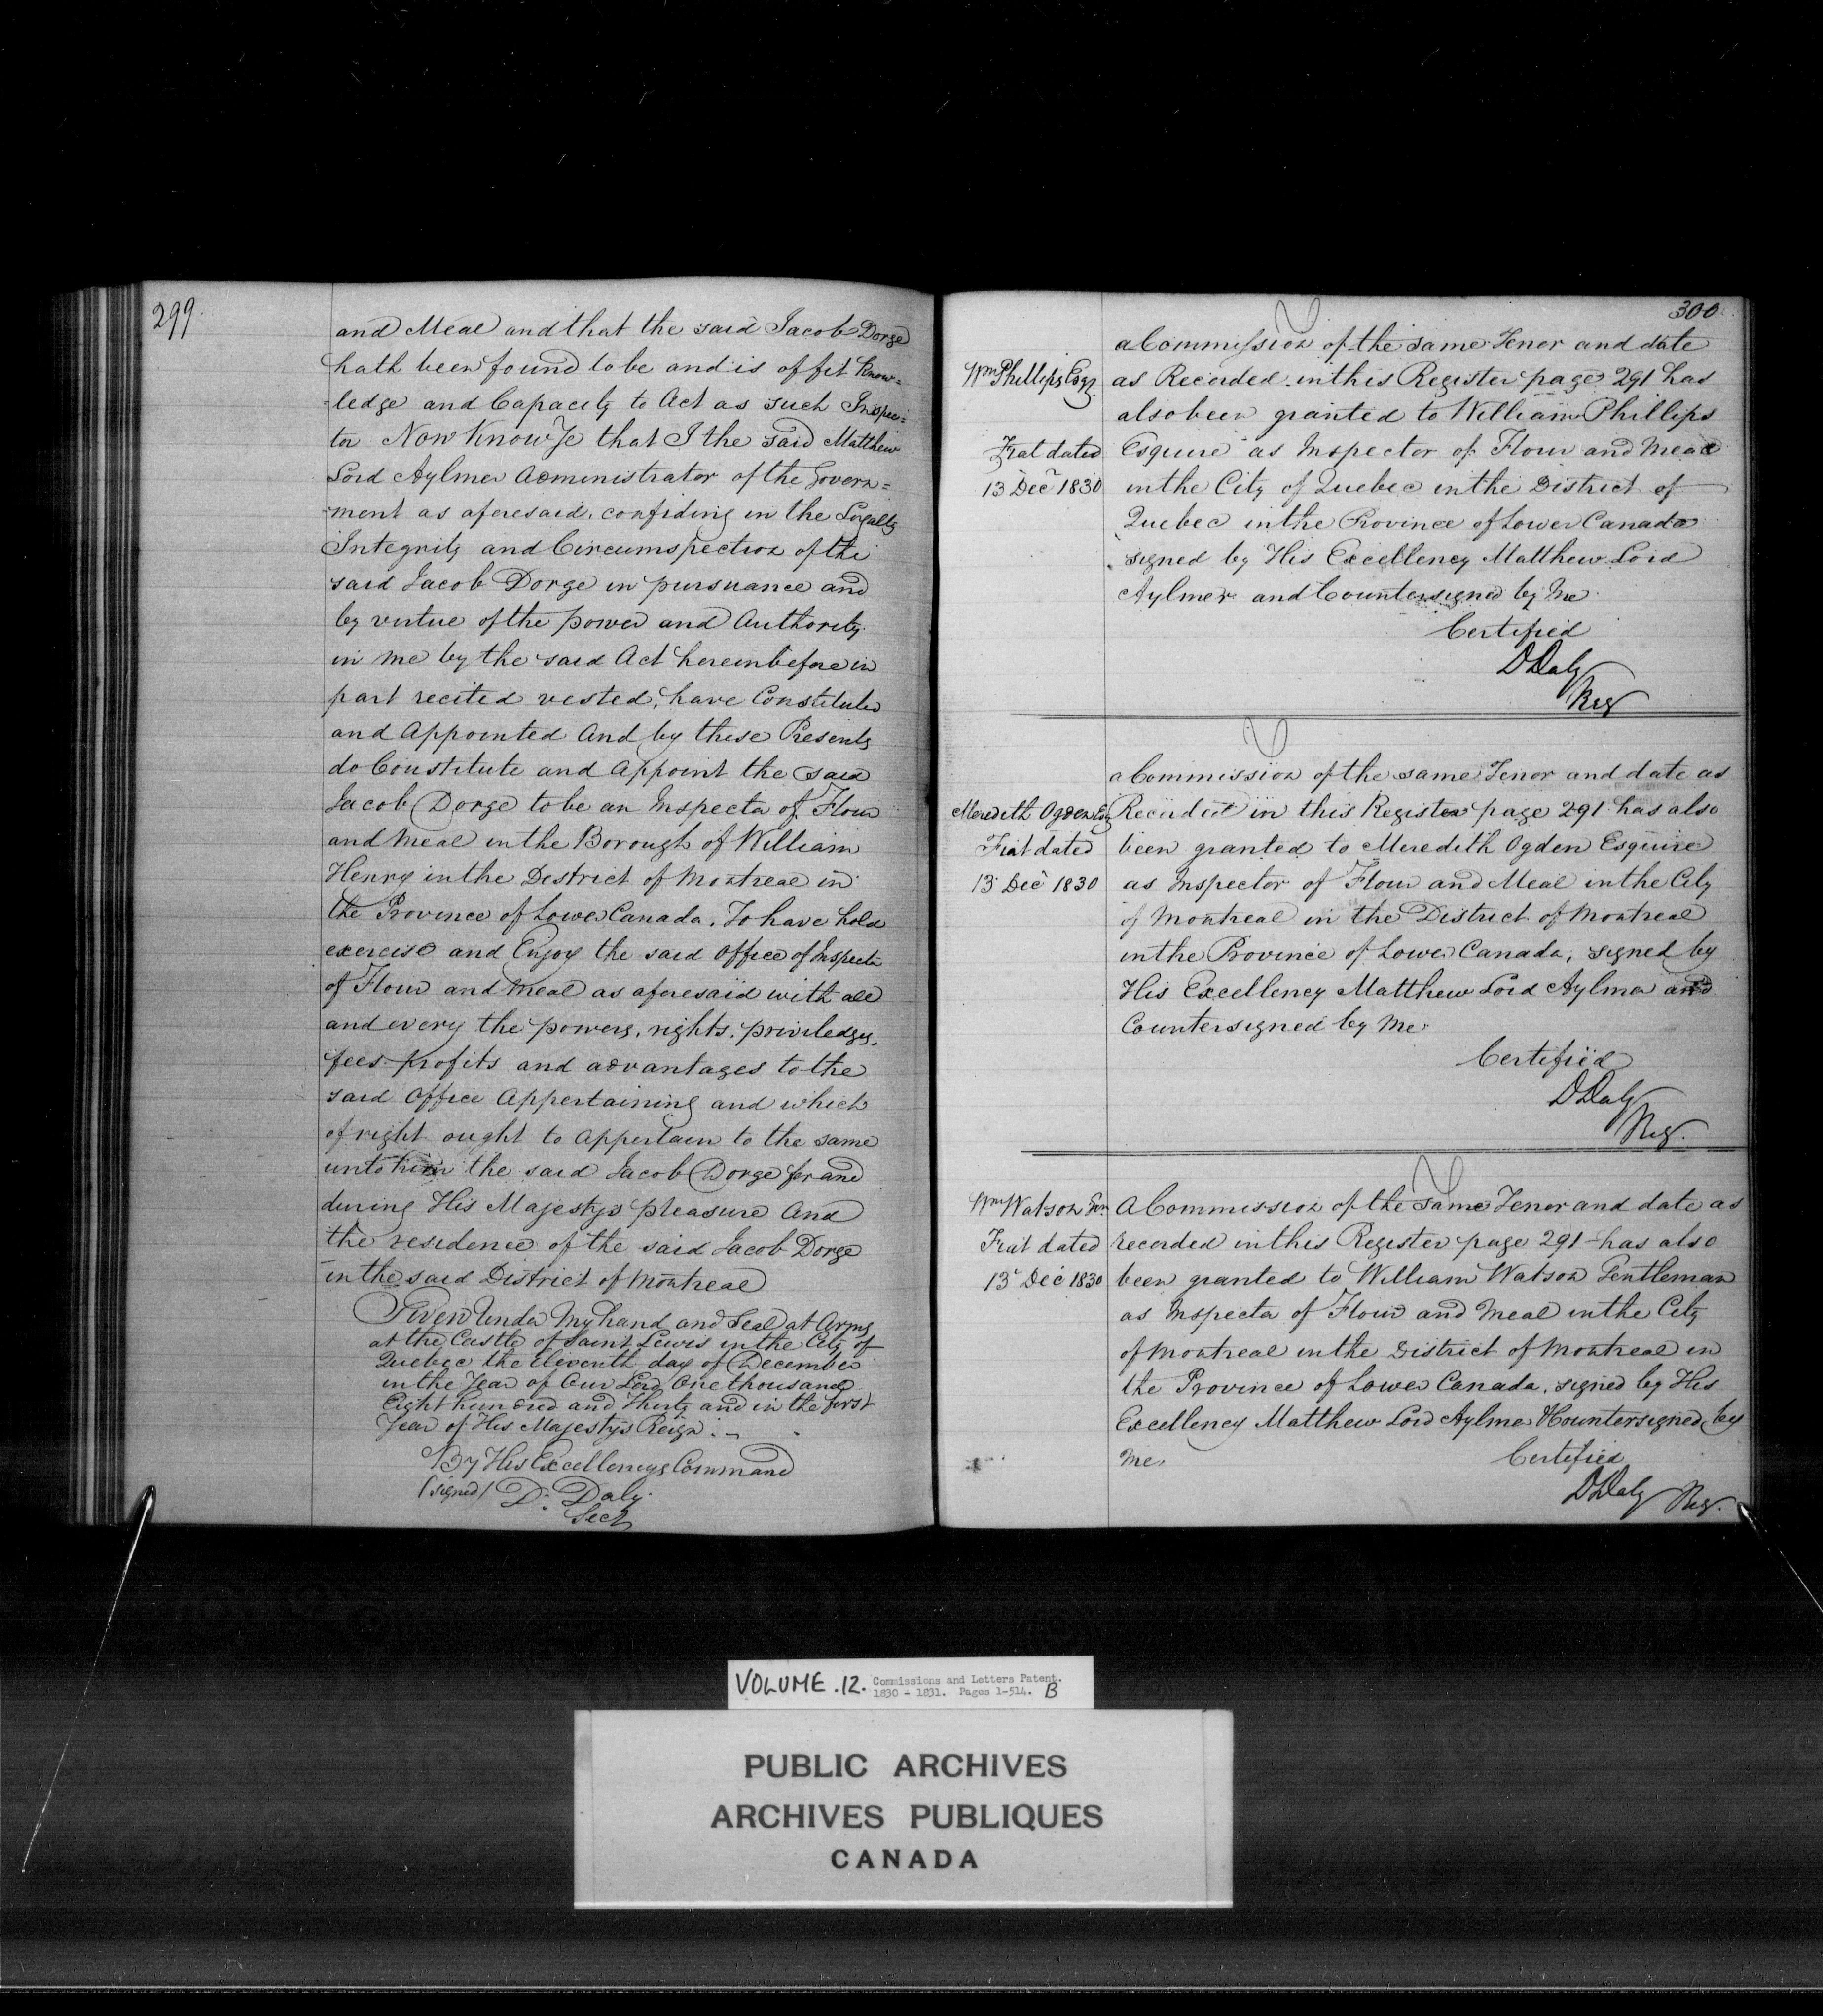 299.
and Meal and that the said Jacob Dorge
hath been found to be and is of fit Know=
=ledge and Capacity to Act as such Inspec=
tor Now Know Ye that I the said Matthew
Lord Aylmer Administrator of the Govern=
=ment as aforesaid, confiding in the Loyalty
Integrity and Circumspection of the
said Jacob Dorge in pursuance and
by virtue of the power and Authority
in me by the said Act hereinbefore in
part recited vested, have Constituted
and Appointed And by these Presents
do Constitute and Appoint the said
Jacob Dorge to be an Inspector of Flour
and Meal in the Borough of William
Henry in the District of Montreal in
the Province of Lower Canada. To have hold
exercise and Enjoy the said Office of Inspector
of Flour and Meal as aforesaid with all
and every the powers, rights, priviledges,
fees profits and advantages to the
said Office Appertaining and which
of right ought to Appertain to the same
unto him the said Jacob Dorge for and
during His Majestys pleasure And
the residence of the said Jacob Dorge
in the said District of Montreal
Given Under My hand and Seal at Arms
at the Castle of Saint Lewis in the City of
Quebec the Eleventh day of December
in the Year of Our Lord One thousand
Eight hundred and Thirty and in the first
Year of His Majestys Reign :~
By His Excellencys Command
(signed) D. Daly.
Secy
300.
a Commission of the same Tenor and date
Wm Phillips Esqr. as Recorded in this Register page 291 has
also been granted to William Phillips
Fiat dated Esquire as Inspector of Flour and Meal
13 Decr 1830 in the City of Quebec in the District of
Quebec in the Province of Lower Canada
signed by His Excellency Matthew Lord
Aylmer and Countersigned by Me.
Certified
DDaly
Reg
a Commission of the same Tenor and date as
Meredith Ogden Esq Recorded in this Register page 291 has also
Fiat dated been granted to Meredith Ogden Esquire
13 Decr 1830 as Inspector of Flour and Meal in the City
of Montreal in the District of Montreal
in the Province of Lower Canada, signed by
His Excellency Matthew Lord Aylmer and
Countersigned by Me.
Certified
DDaly
Reg.
Wm Watson Gen. A Commission of the same Tenor and date as
Fiat dated recorded in this Register page 291 - has also
13r Dec 1830 been granted to William Watson Gentleman
as Inspector of Flour and Meal in the City
of Montreal in the District of Montreal in
the Province of Lower Canada, signed by His
Excellency Matthew Lord Aylmer & Countersigned by
Me.
Certified
DDaly Reg.
VOLUME .12. Commissions and Letters Patent.
1830 - 1831. Pages 1-514. B
PUBLIC ARCHIVES
ARCHIVES PUBLIQUES
CANADA